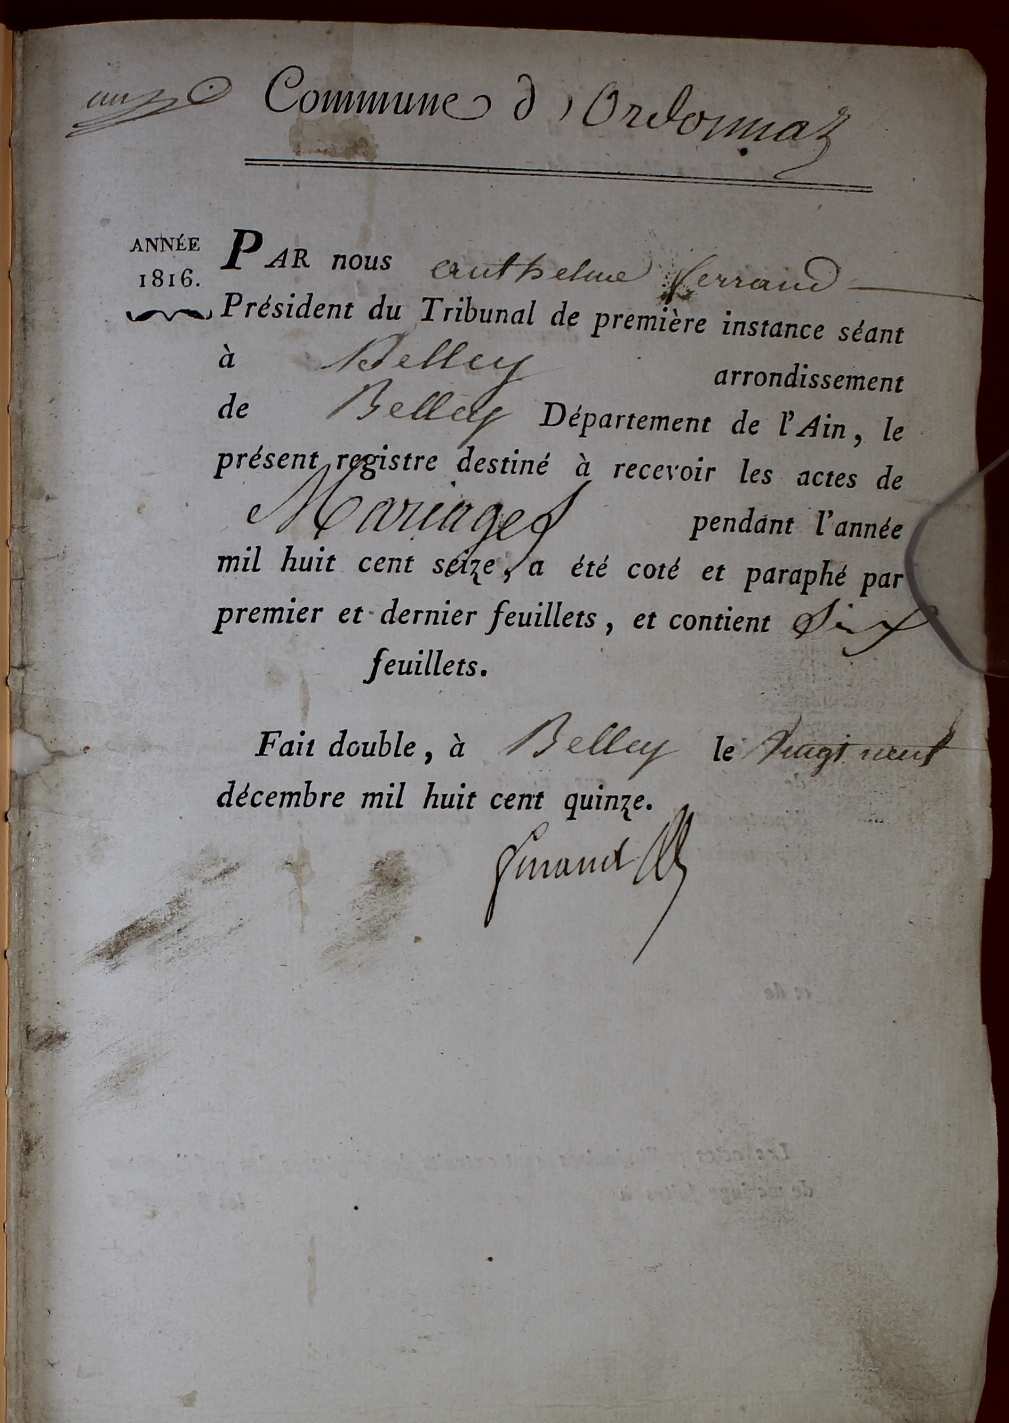 Commune d'Ordonnaz
ANNÉE
1816.
PAR nous anthelme ferrand
Président du Tribunal de première instance séant
à Belley arrondissement
de Belley Département de l'Ain, le
présent registre destiné à recevoir les actes de
Mariages pendant l'année
mil huit cent seize, a été coté et paraphé par
premier et dernier feuillets, et contient Six
feuillets.
Fait double, à Belley le vingt neuf
décembre mil huit cent quinze.